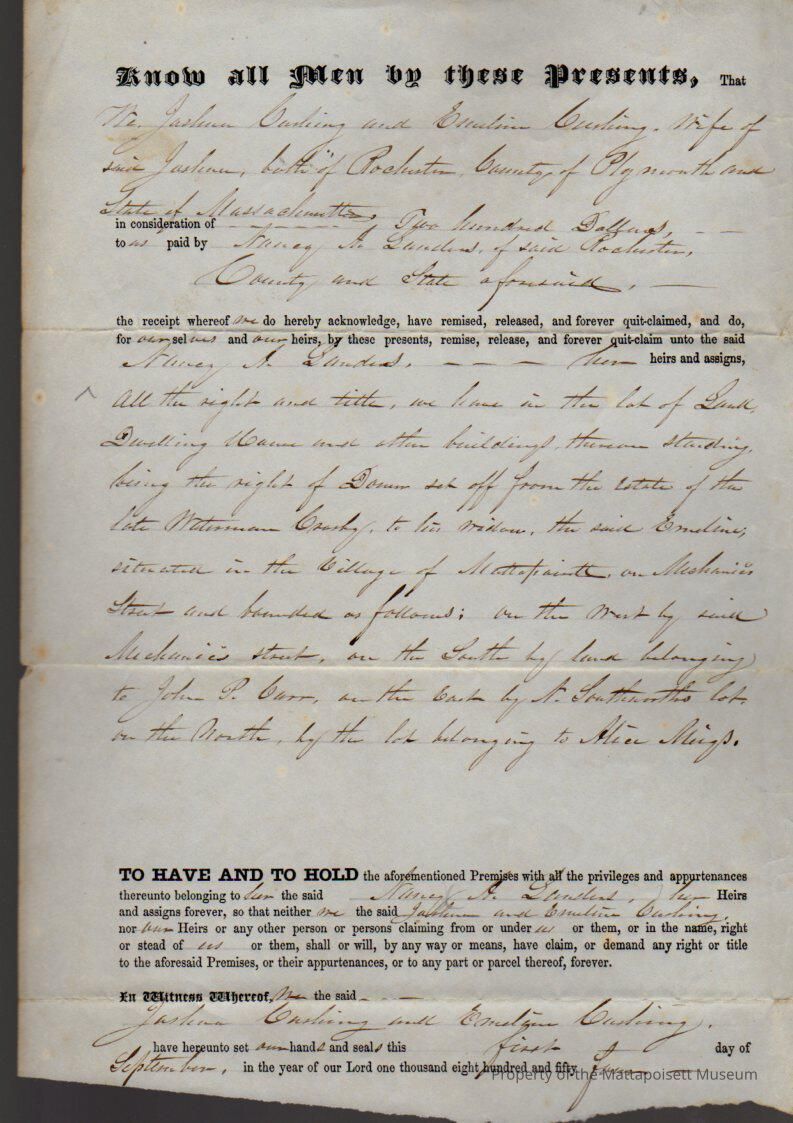 Know all Men by these Presents, That
We, Joshua Cushing and Emeline Cushing, Wife of
said Joshua, both of Rochester, County of Plymouth and
State of Massachusetts,
in consideration of - - - - - - Two hundred Dollars, - -
to us paid by Nancy A. Landers, of said Rochester,
County and State aforesaid, —
the receipt whereof we do hereby acknowledge, have remised, released, and forever quit-claimed, and do,
for ourselves and our heirs, by these presents, remise, release, and forever quit-claim unto the said
Nancy A. Landers, - - - her heirs and assigns,
All the right and title, we have in the lot of Land,
Dwelling House and other buildings thereon standing,
being the right of Dower set off from the estate of the
late Waterman Crosby, to his widow, the said Emeline,
situated in the Village of Mattapoisett, on Mechanics
Street and bounded as follows: on the West by said
Mechanics street, on the South by land belonging
to John P. Carr, on the East by N. Southworth's lot,
on the North, by the lot belonging to Alice Meigs.
TO HAVE AND TO HOLD the aforementioned Premises with all the privileges and appurtenances
thereunto belonging to her the said Nancy A. Landers, her Heirs
and assigns forever, so that neither we the said Joshua and Emeline Cushing,
nor our Heirs or any other person or persons claiming from or under us or them, or in the name, right
or stead of us or them, shall or will, by any way or means, have claim, or demand any right or title
to the aforesaid Premises, or their appurtenances, or to any part or parcel thereof, forever.
In Witness Whereof, We the said - - -
Joshua Cushing and Emeline Cushing,
have hereunto set our hands and seals this first day of
September, in the year of our Lord one thousand eight hundred and fifty
Property of the Mattapoisett Museum